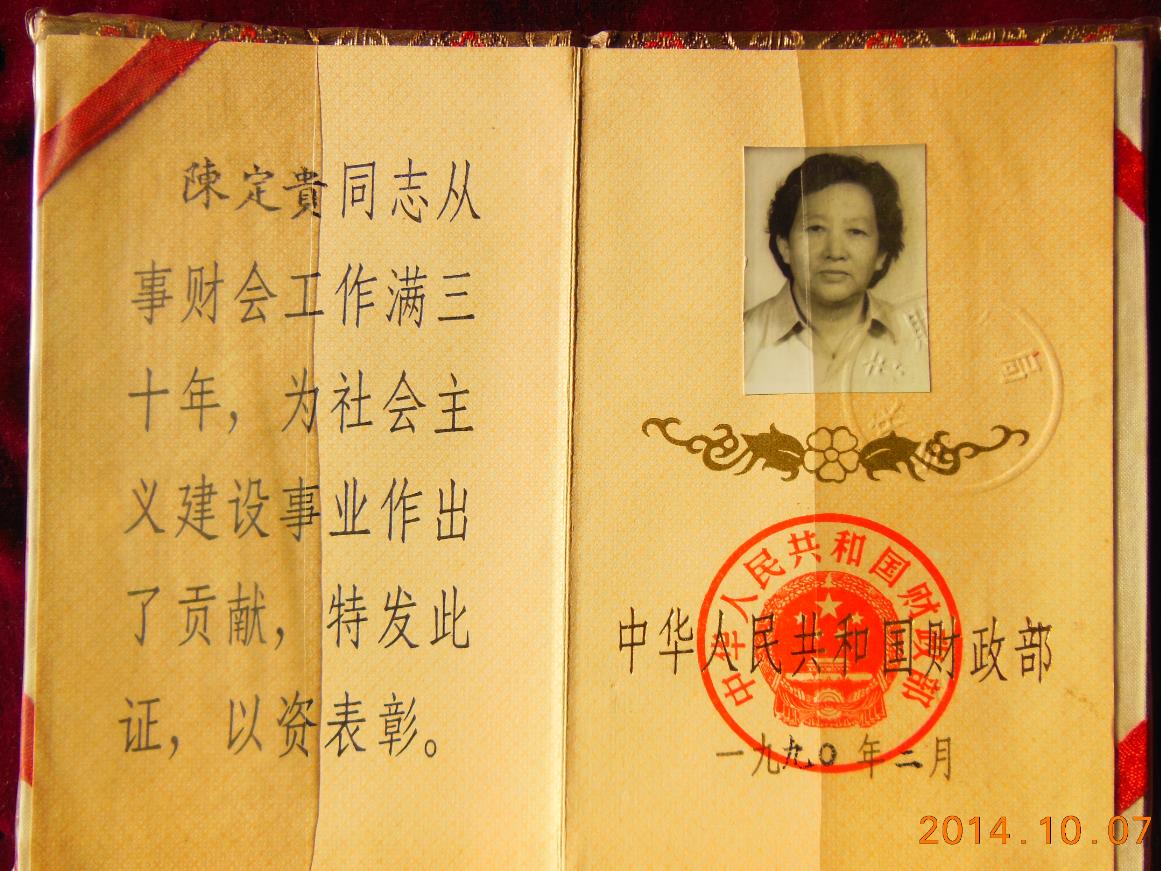 陳定貴同志从
事财会工作满三
十年，为社会主
义建设事业作出
了贡献，特发此
证，以资表彰。
局
中华人民共和国财政部
中华人民共和国财政部
一九九〇年二月
2014.10.07